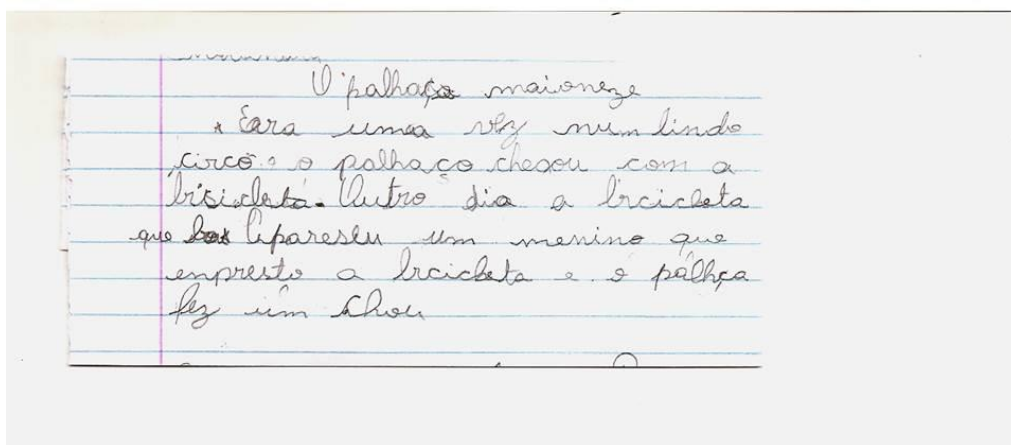 O palhaço maioneze
Eara uma vez num lindo
circo e o palhaço chegou com a
bisicleta. Outro dia a bicicleta
que Apareseu um menino que
enpresto a bicicleta e o palhça
fez um chou